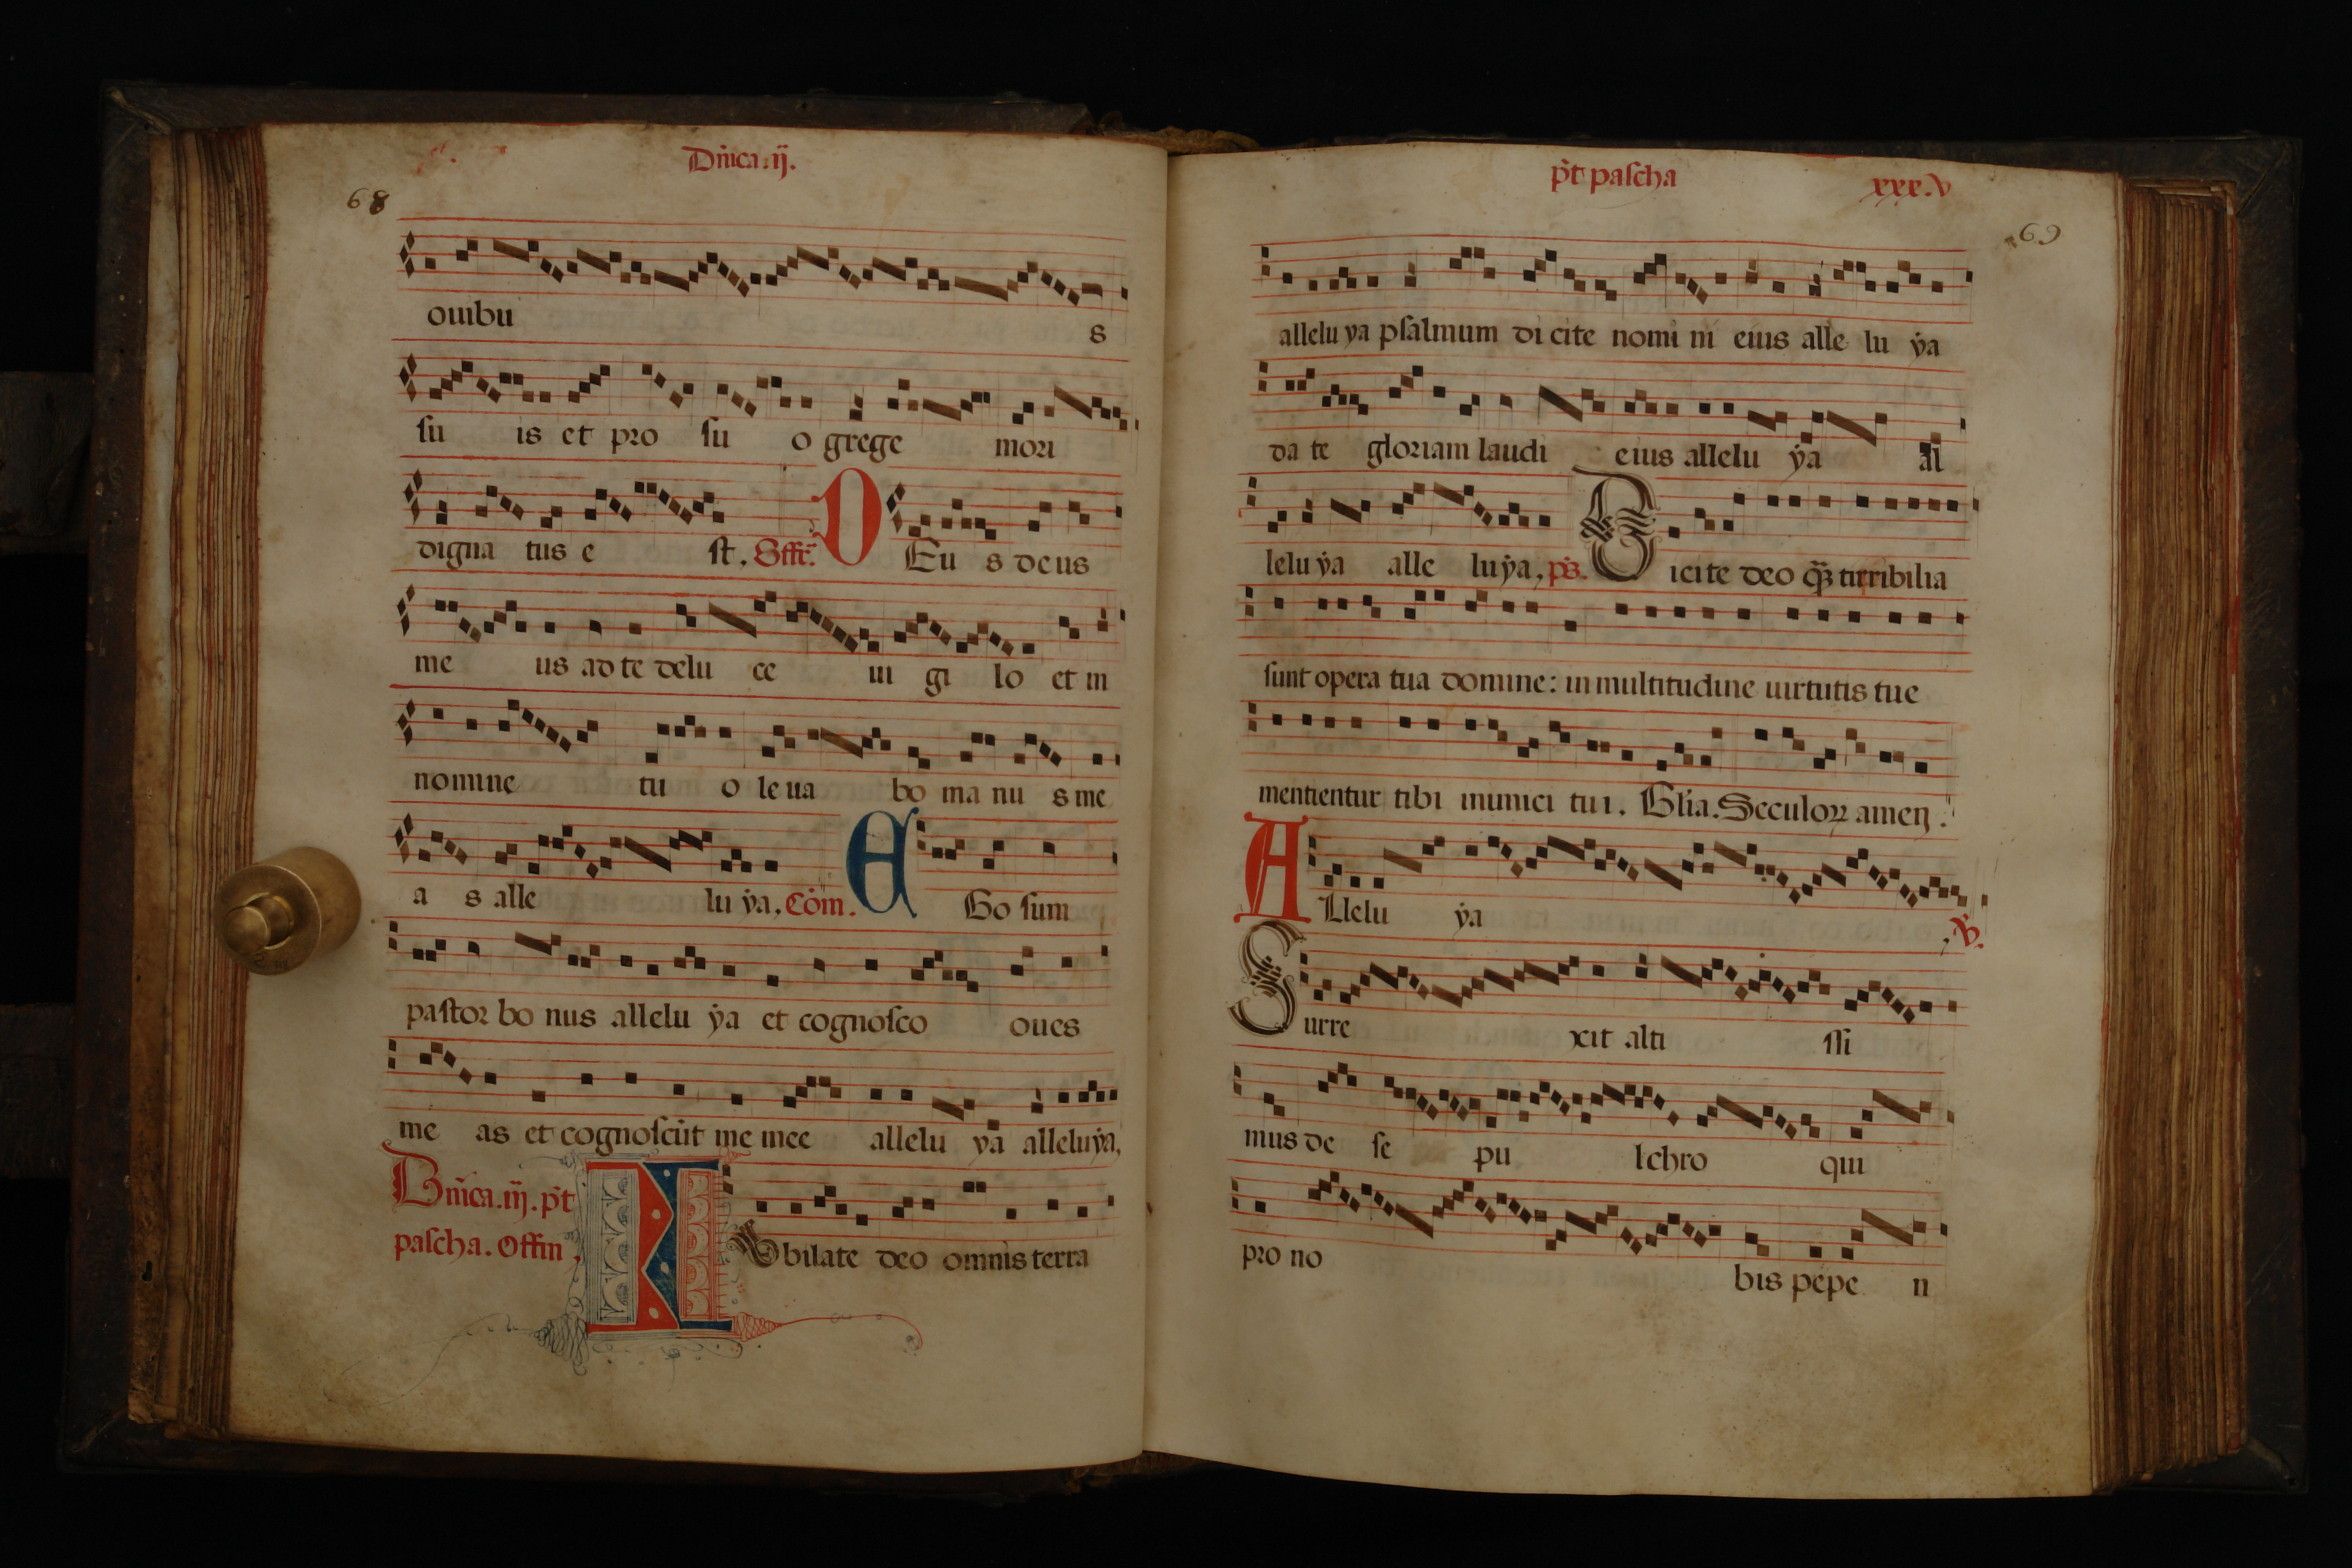 Dn̄ica.ij.
68
ouibu s
su is et pro su o grege mori
digna tus e st. Offr̄. D Eu s deus
me us ad te delu ce ui gi lo et in
nomine tu o le ua bo ma nu s me
a s alle lu ẏa, Com̄. E Go sum
pastor bo nus allelu ẏa et cognosco oues
me as et cognoscūt me mee allelu ya alleluẏa,
Dn̄ica.iij.p̄t
pascha. Offin, I Vbilate deo omnis terra
p̄t pascha xxx.v
69
allelu ya psalmum di cite nomi ni eius alle lu ẏa
da te gloriam laudi eius allelu ẏa al
lelu ẏa alle luẏa, ps̄. D icite deo q̄ꝫ terribilia
sunt opera tua domine: in multitudine uirtutis tue
mentientur tibi inimici tui. Gl̄ia. Seculoꝝ amen.
A Llelu ẏa , ℣.
S urre xit alti ssi
mus de se pu lchro qui
pro no bis pepe n